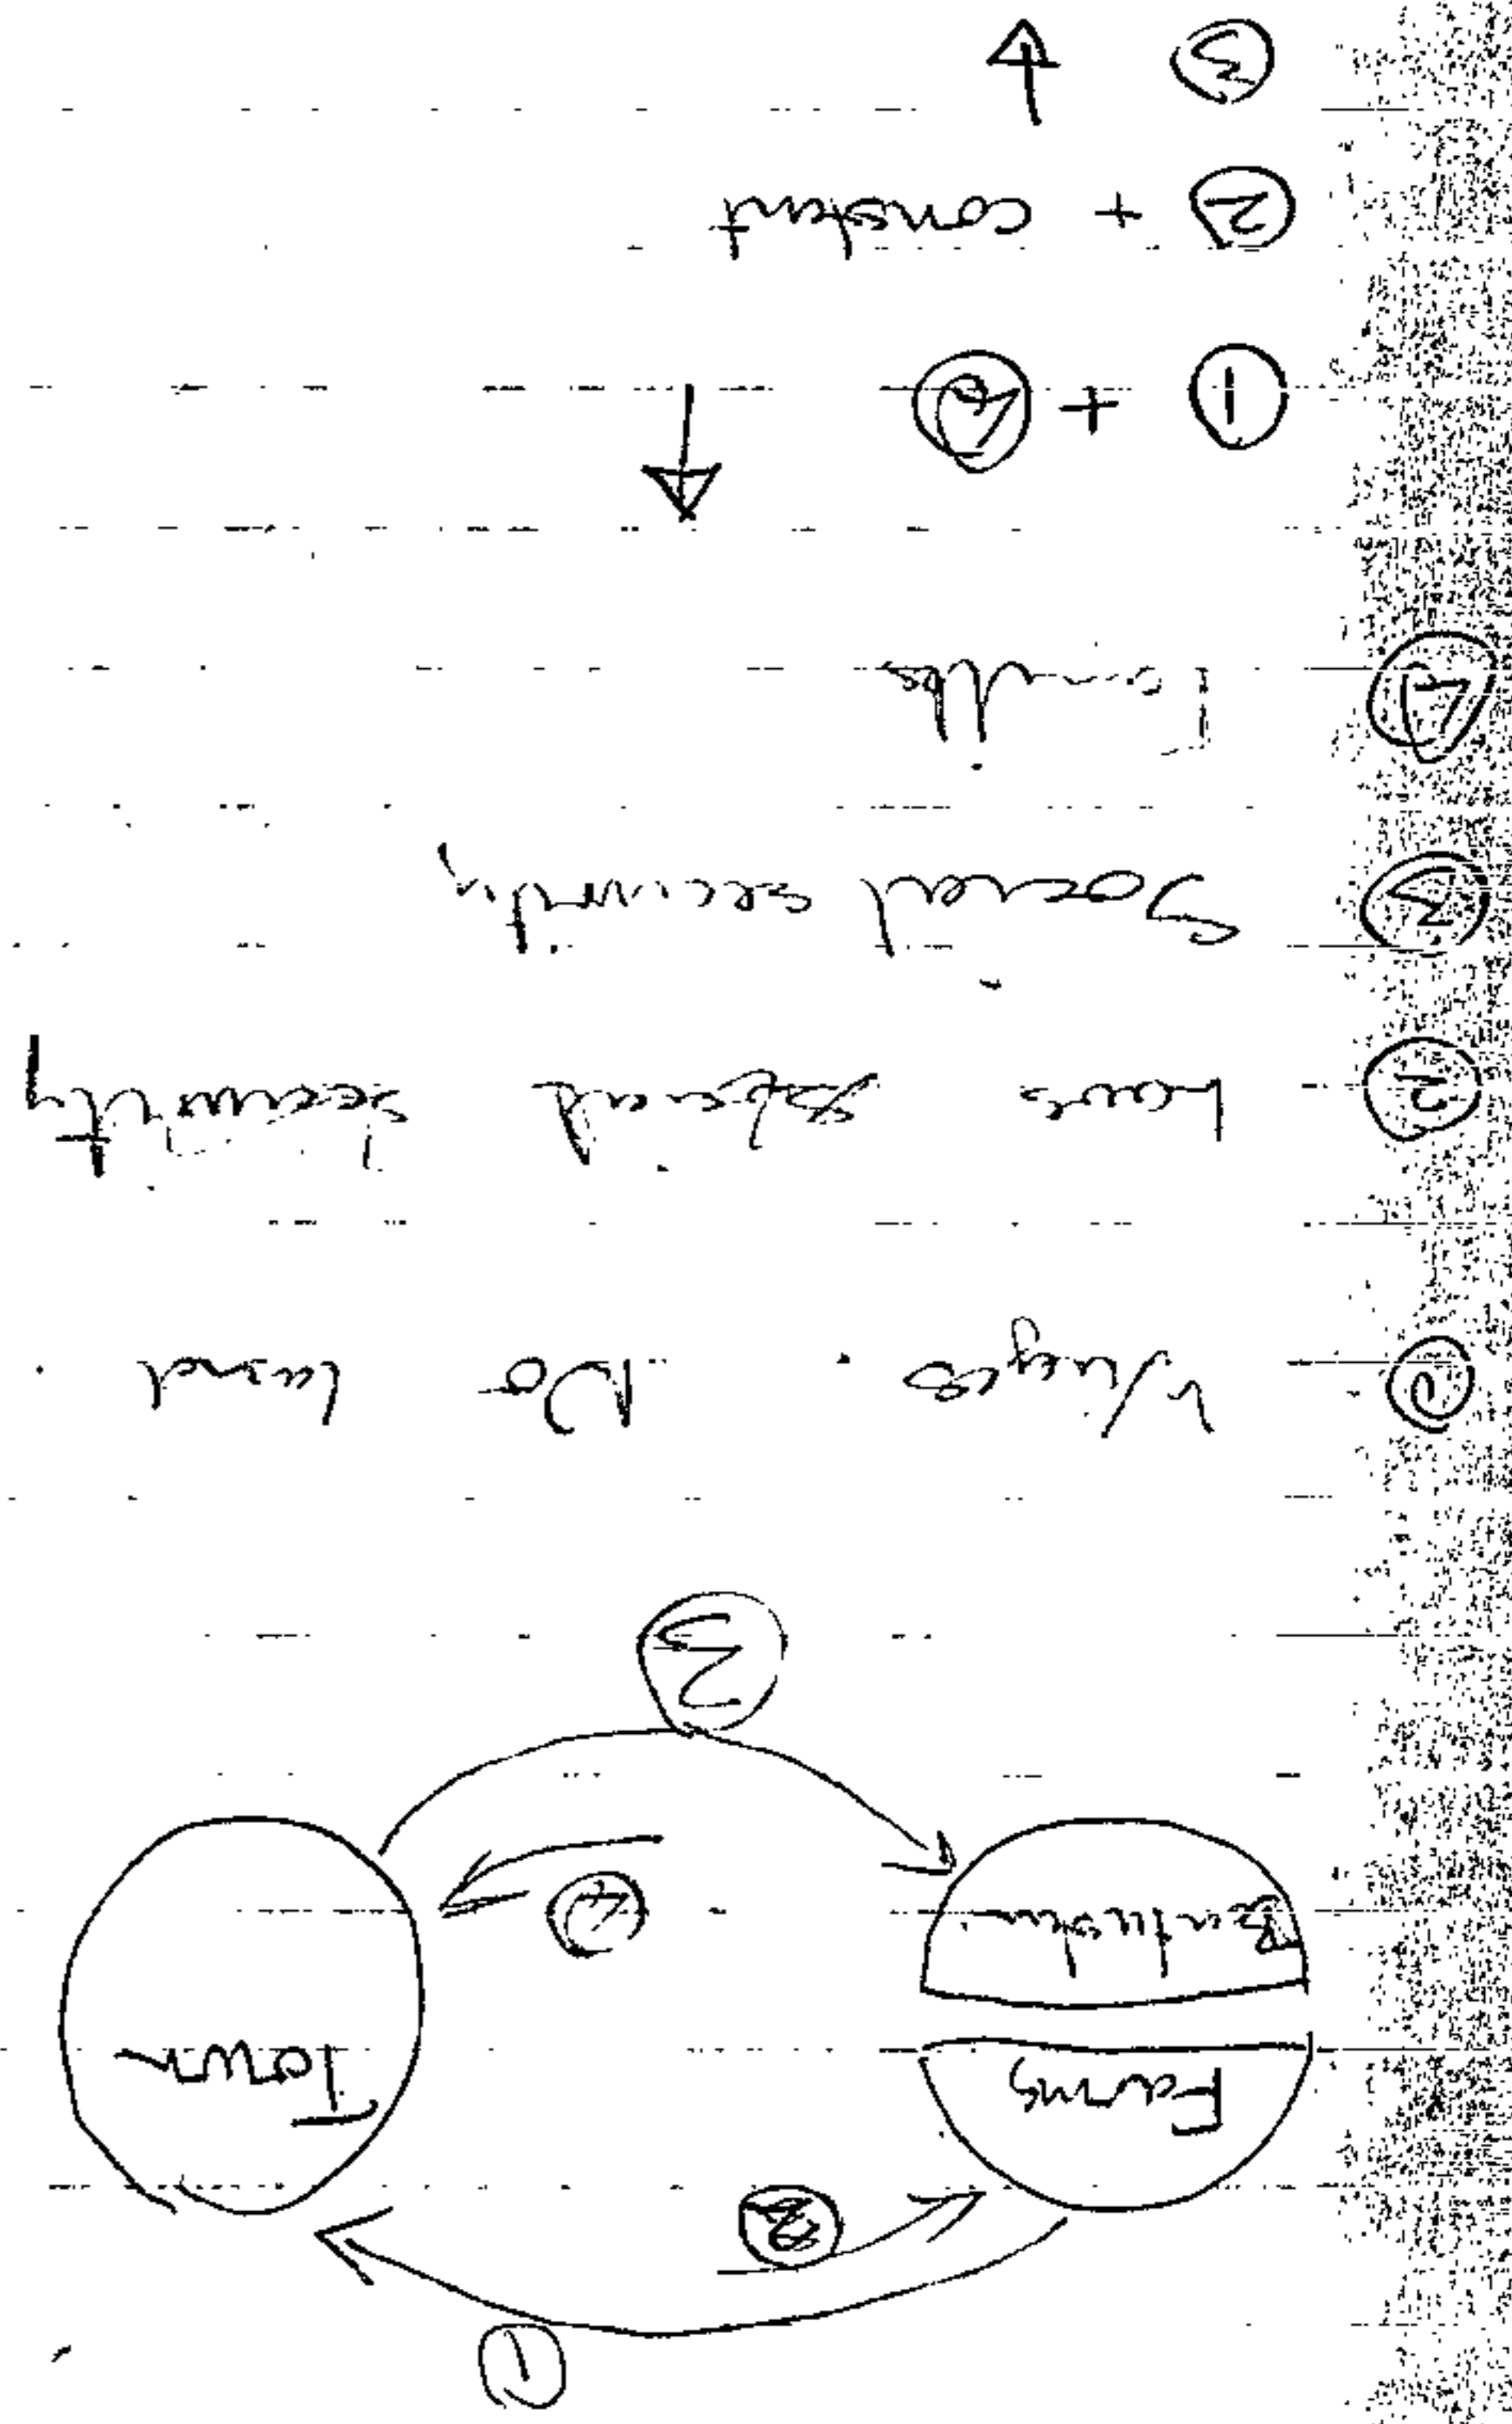 ①
②
Farms Town
Bantustan ④
③
① Wages. No land.
② Laws security
③ Social security
④ Families
① + ④ ↑
② + constant
③ ↓